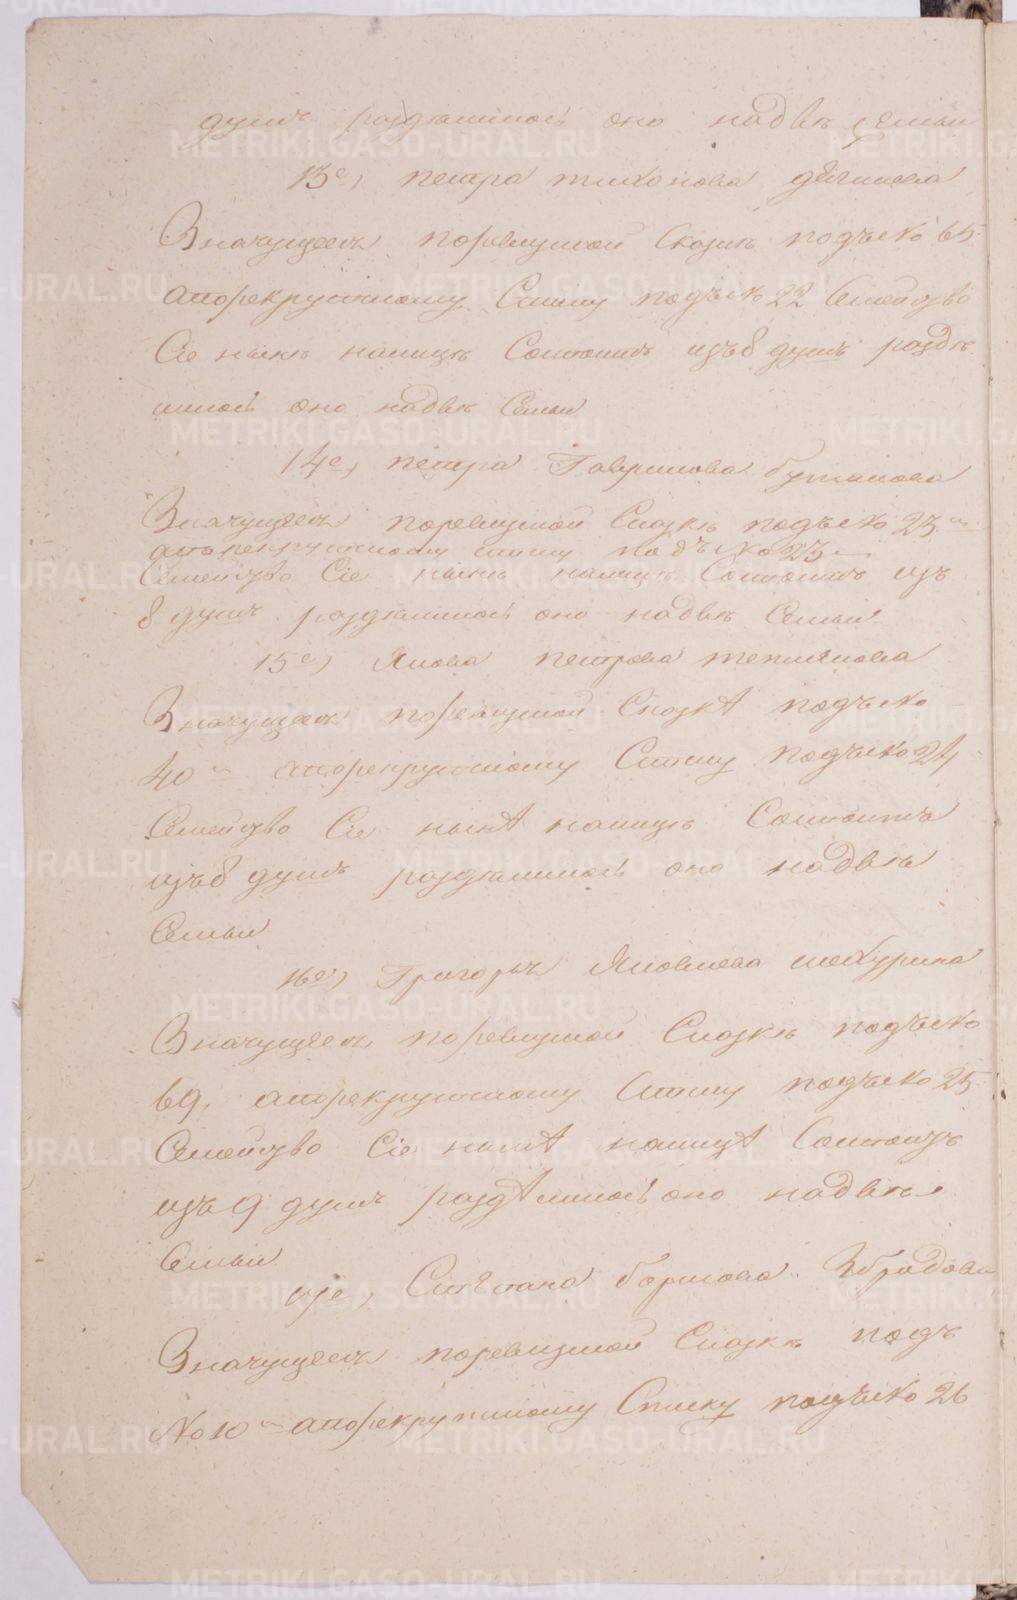 душъ раздѣлилось оно надвѣ семьи
13е, петра тихонова
Значущеесъ поревизкой Сказкѣ подъ№ 65
апорекрутскому Списку подъ№ 22 Семейство
Сіе нынѣ налицѣ Состоитъ изъ 8 душъ раздѣ
лилось оно надвѣ Семьи
14е, петра Гаврилова
Значущеесъ поревизкой Сказкѣ подъ№ 23
апорекрутскому списку подъ№ 23
Семейство Сіе нынѣ налицѣ Состоитъ изъ
8 душъ раздѣлилось оно надвѣ Семьи
15е, Якова петрова
Значущеесъ поревизкой Сказкѣ подъ№
40 апорекрутскому Списку подъ№ 24
Семейство Сіе нынѣ налицѣ Состоитъ
изъ 8 душъ раздѣлилось оно надвѣ
Семьи
16е, Григорья Яковлева
Значущеесъ поревизкой Сказкѣ подъ№
69. апорекрутскому Списку подъ№ 25
Семейство Сіе нынѣ налицѣ Состоитъ
изъ 9 душъ раздѣлилось оно надвѣ
Семьи
17е, Степана
Значущеесъ поревизкой Сказкѣ подъ
№ 10 апорекрутскому Списку подъ№ 26
METRIKI.GASO-URAL.RU